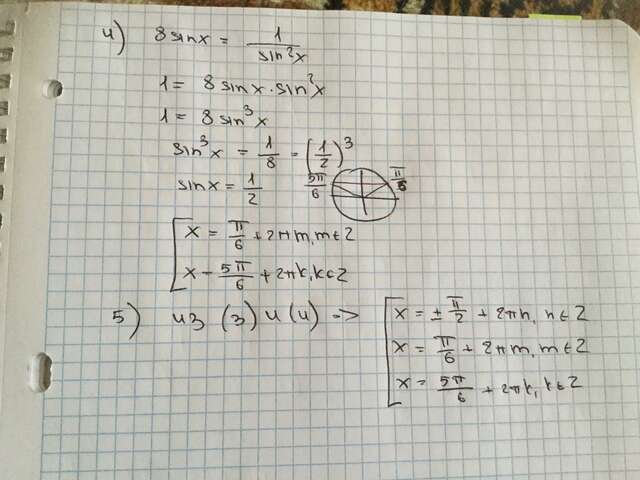 4) 8 sin x = 1/sin²x
1 = 8 sin x · sin²x
1 = 8 sin³x
sin³x = 1/8 = (1/2)³
sin x = 1/2
5π/6 π/6
[ x = π/6 + 2πm, m ∈ Z
x = 5π/6 + 2πk, k ∈ Z
5) из (3) и (4) => [ x = ± π/2 + 2πn, n ∈ Z
x = π/6 + 2πm, m ∈ Z
x = 5π/6 + 2πk, k ∈ Z